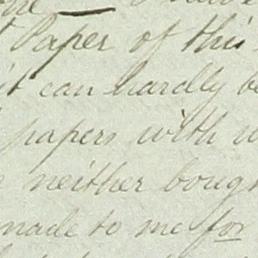 Paper of this
it can hardly be
papers with
neither bough
made to me for